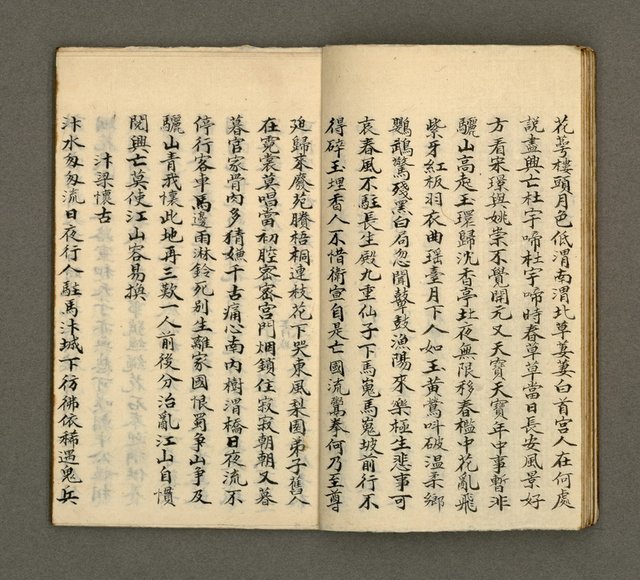 花萼樓頭月色低渭南渭北草萋萋白首宮人在何處
說盡興亡杜宇啼杜宇啼時春草草當日長安風景好
方看宋璟與姚崇不覺開元又天寶天寶年中事暫非
驪山高走玉環歸沈香亭北夜無限移春檻中花亂飛
紫牙紅板羽衣曲瑤臺月下人如玉黃鶯叫破溫柔鄉
鸚鵡驚殘黑白局忽聞鼙鼓漁陽來樂極生悲事可
哀春風不駐長生殿九重仙子下馬嵬馬嵬坡前行不
得碎玉埋香人不惜術宣自是亡國流鸞奉何乃至尊
廹歸來廢苑賸梧桐連枝花下哭東風梨園弟子舊人
在霓裳莫唱當初腔密密宮門烟鎖住寂寂朝朝又暮
暮官家骨肉多猜嫌千古痛心南內樹渭橋日夜流不
停行客車馬邊雨淋鈴死别生離家國恨蜀爭山爭及
驪山青我懷此地再三歎一人前後分治亂江山自慣
閱興亡莫使江山容易換
汴梁懷古
汴水匆匆流日夜行人駐馬汴城下彷彿依稀遇鬼兵